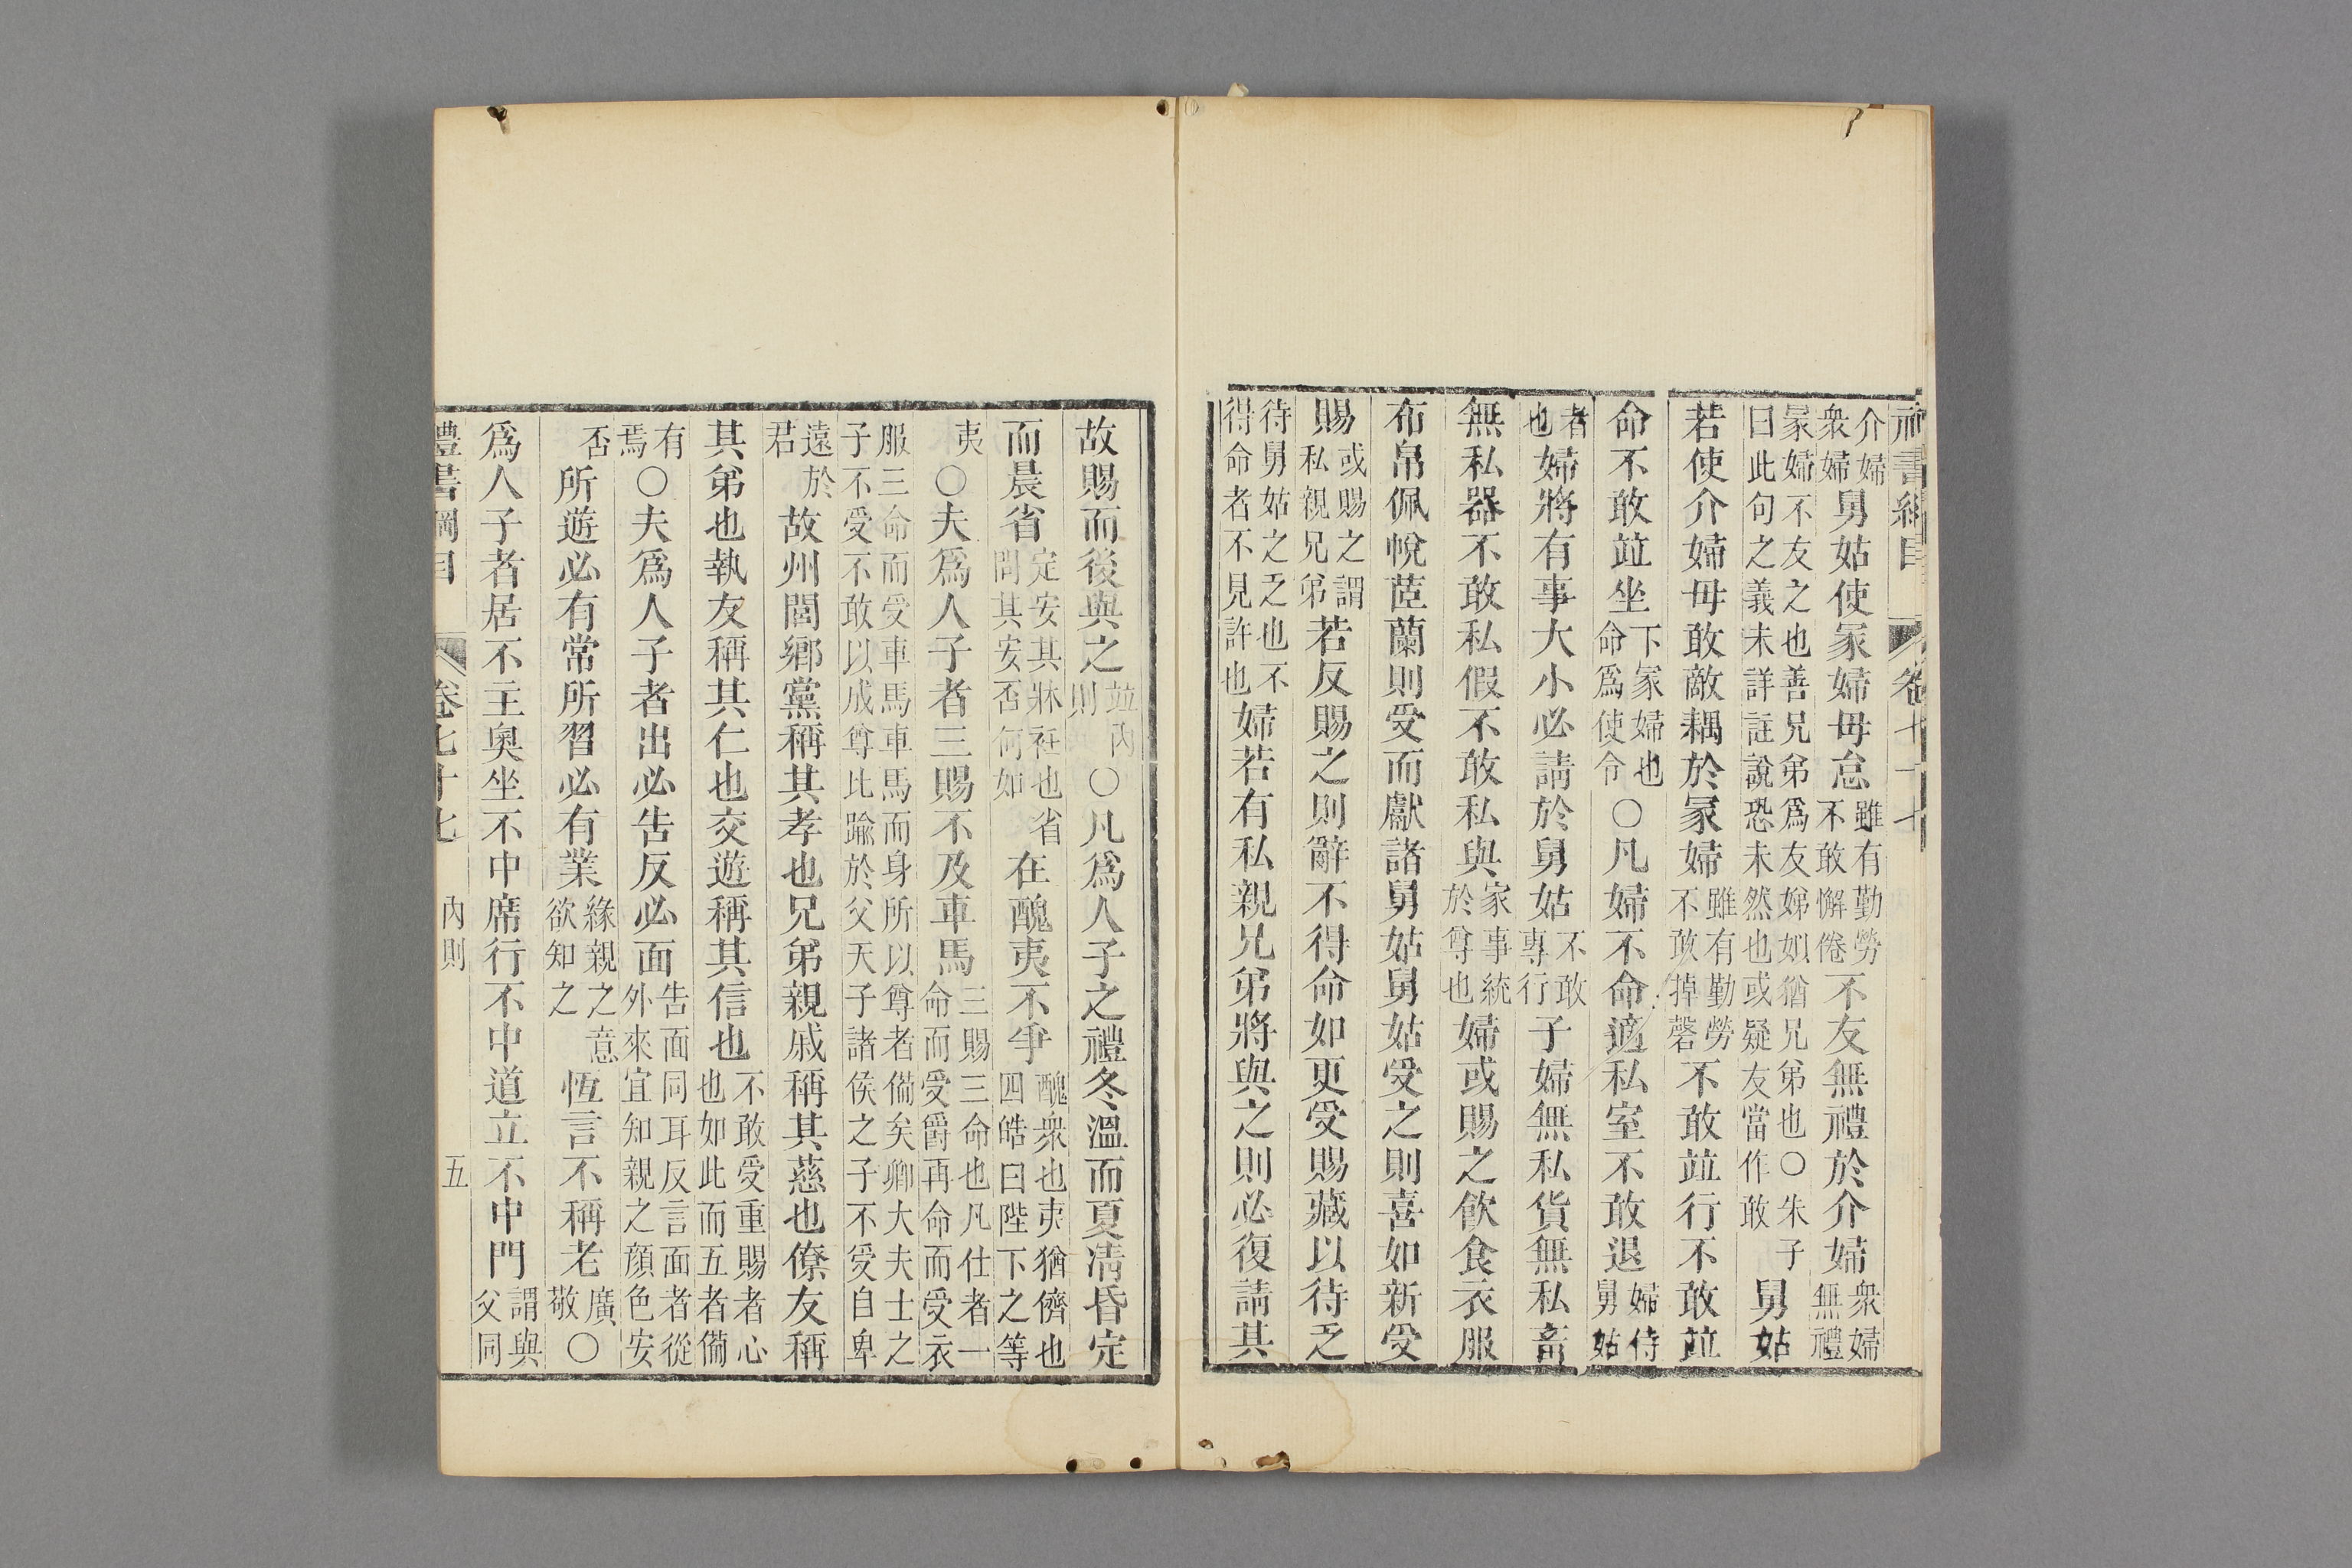 禮書綱目 卷七十七
介婦眾婦舅姑使冢婦毋怠雖有勤勞不敢懈倦不友無禮於介婦眾婦無禮
冢婦不友之也善兄弟爲友娣姒猶兄弟也○朱子曰此句之義未詳註說恐未然也或疑友當作敢舅姑
若使介婦毋敢敵耦於冢婦雖有勤勞不敢掉磬不敢竝行不敢竝
命不敢竝坐下冢婦也命爲使令○凡婦不命適私室不敢退婦侍舅姑
者也婦將有事大小必請於舅姑不敢專行子婦無私貨無私畜
無私器不敢私假不敢私與家事統於尊也婦或賜之飲食衣服
布帛佩帨茝蘭則受而獻諸舅姑舅姑受之則喜如新受
賜或賜之謂私親兄弟若反賜之則辭不得命如更受賜藏以待乏
待舅姑之乏也不得命者不見許也婦若有私親兄弟將與之則必復請其
故賜而後與之竝內則○凡爲人子之禮冬溫而夏凊昏定
而晨省定安其牀衽也省問其安否何如在醜夷不爭醜眾也夷猶儕也四皓曰陛下之等
夷○夫爲人子者三賜不及車馬三賜三命也凡仕者一命而受爵再命而受衣
服三命而受車馬車馬而身所以尊者備矣卿大夫士之子不受不敢以成尊比踰於父天子諸侯之子不受自卑
遠於君故州閭鄉黨稱其孝也兄弟親戚稱其慈也僚友稱
其弟也執友稱其仁也交遊稱其信也不敢受重賜者心也如此而五者備
有焉○夫爲人子者出必告反必面告面同耳反言面者從外來宜知親之顏色安
否所遊必有常所習必有業緣親之意欲知之恆言不稱老廣敬○
爲人子者居不主奧坐不中席行不中道立不中門謂與父同
禮書綱目 卷七十七 內則 五